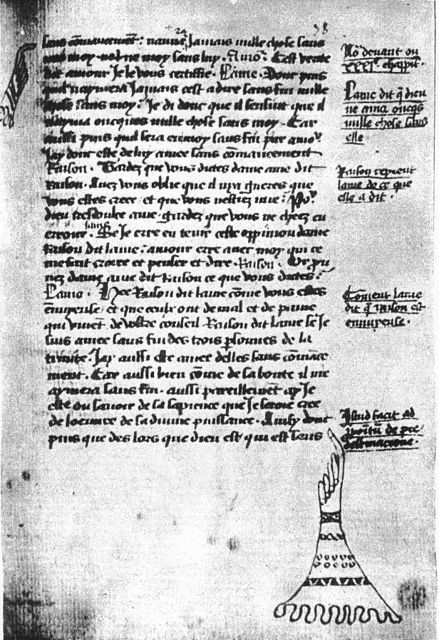 38
sans comancement: naymera Jamais nulle chose sans
moy ne moy sans luy. Amo'. Cest verite
dit amour Je le vous certifie. Lame. Donc puis
quil naymera Jamais cest a dire sans fin nulle
chose sans moy. Je di donc que il sensuit que il
nayma oncques nulle chose sans moy. Car
aussi puis quil sera en moy sans fin par amo'
Jay donc este de luy amee sans comancement
Raison. Gardez que vous dictes dame ame dit
Raison. Avez vous oblie que il nya gueres que
vous estes creee et que vous nestiez mie. Po'
dieu tresdoulce ame gardez que vous ne cheez en
erreur. Se Je erre en tenir ceste oppinion dame
Raison dit lame: amour erre avec moy qui ce
me fait croire et penser et dire. Raison. Or pu
vez dame ame dit Raison ce que vous dictes.
Lame. Hee Raison dit lame come vous estes
ennuyeuse et que ceulx ont de mal et de paine
qui vivent de vostre conseil Raison dit lame se Je
suis amee sans fin des trois psonnes de la
trinite. Jay aussi este amee delles sans comance
ment. Car aussi bien come de sa bonte il me
aymera sans fin. aussi pareillement ay Je
este ou savoir de sa sapience que Je seroie cree
de loeuvre de sa divine puissance. Ainsi donc
puis que des lors que dieu est qui est sans
devant ou
chappit.
Lame dit q dieu
ne ama oncqs
nulle chose sans
elle
Raison reprent
lame de ce que
elle a dit.
Coment lame
dit q raison est
ennuyeuse.
Istud facit ad
de pre
destinacione.